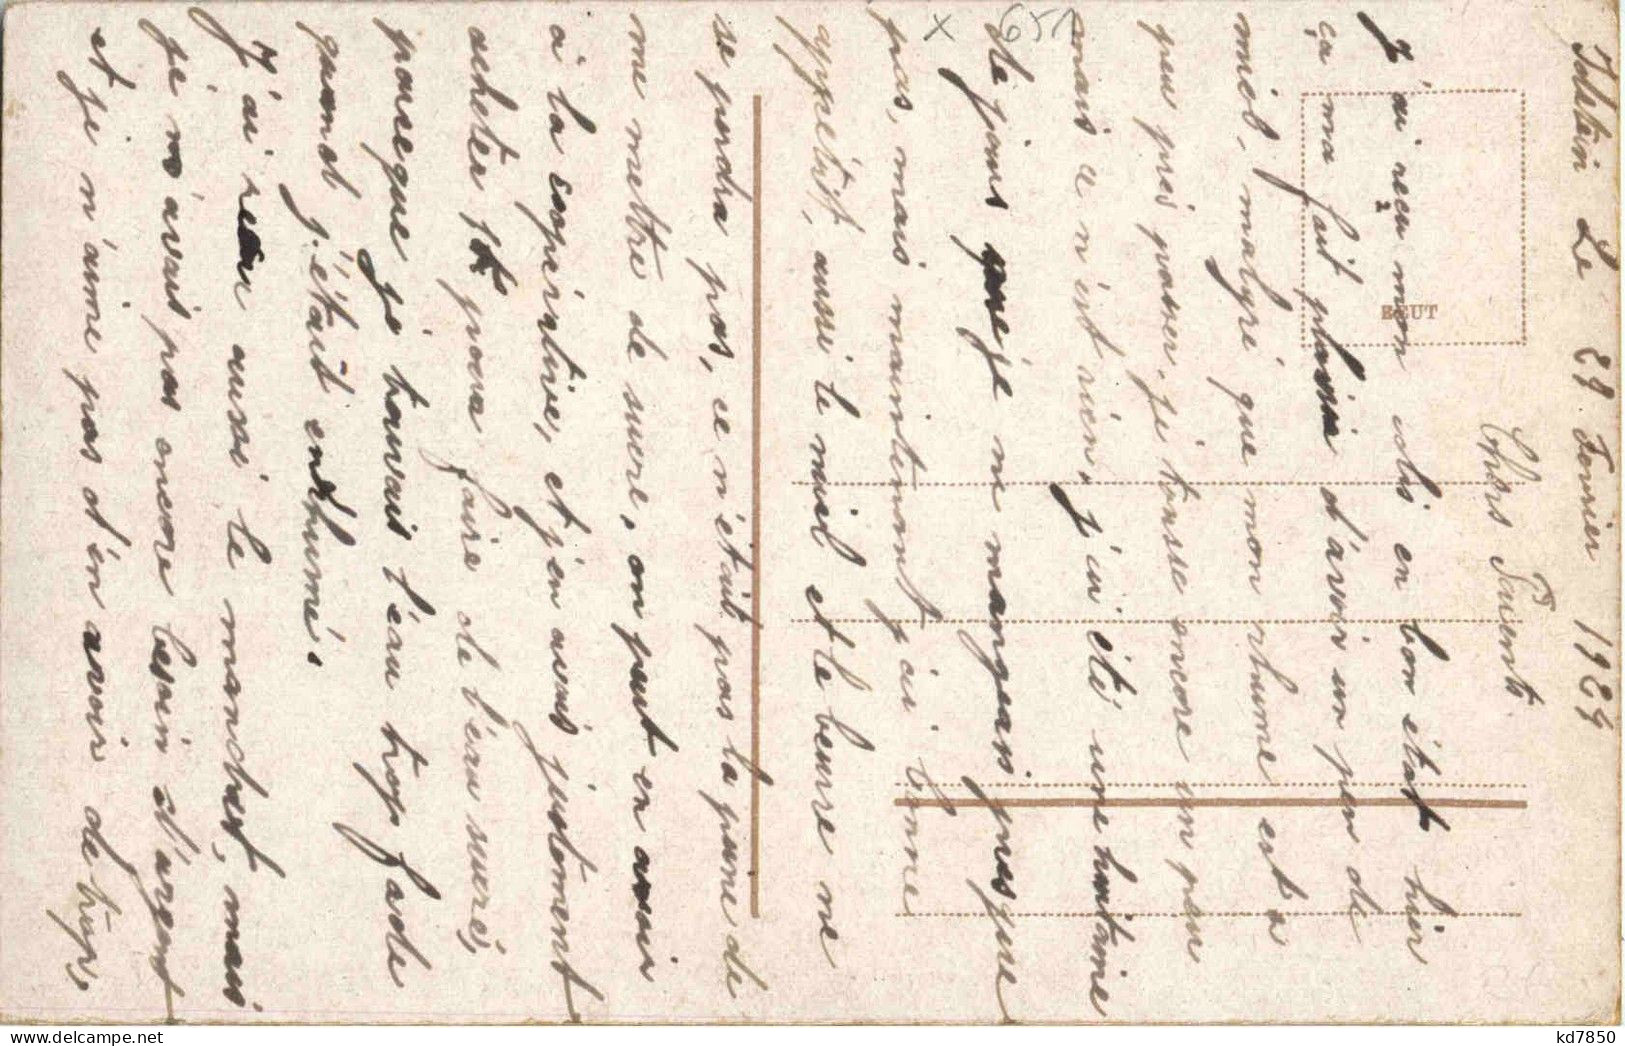 Le 29 Fevrier 1924
Chers Parents
J'ai recu mon colis en bon état hier
ça ma fait plaisir d'avoir un peu de
miel, malgré que mon rhume est à
peu près passer, je tousse encore un peu
mais ce n'est rien, j'ai été une huitaine
de jours que je ne mangeais presque
pas, mais maintenant j'ai bonne
appétit, aussi le miel et le beurre ne
se perdra pas, ce n'était pas la peine de
me mettre de sucre, on peut en avoir
à la coopérative, et j'en avais justement
acheter 1k pour faire de l'eau sucré,
parseque je trouvais l'eau trop fade
quand j'était enrhumé.
J'ai recu aussi le mandat, mais
je n'avais pas encore besoin d'argent
et je n'aime pas d'en avoir de trop,
BEUT
x 651
kd7850